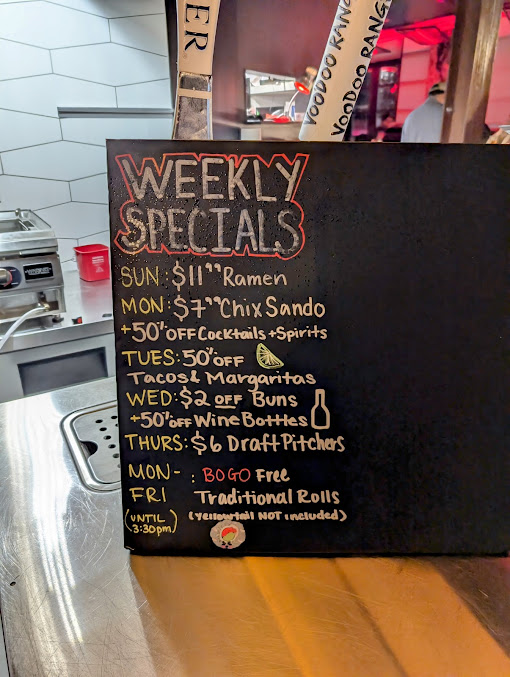 ER
VOODOO RANG
VOODOO RANG
WEEKLY
SPECIALS
SUN: $11⁹⁹ Ramen
MON: $7⁹⁹ Chix Sando
+50% OFF Cocktails + Spirits
TUES: 50% OFF
Tacos & Margaritas
WED: $2 OFF Buns
+50% OFF Wine Bottles
THURS: $6 Draft Pitchers
MON- : BOGO Free
FRI Traditional Rolls
(UNTIL 3:30pm) (Yellowtail NOT included)